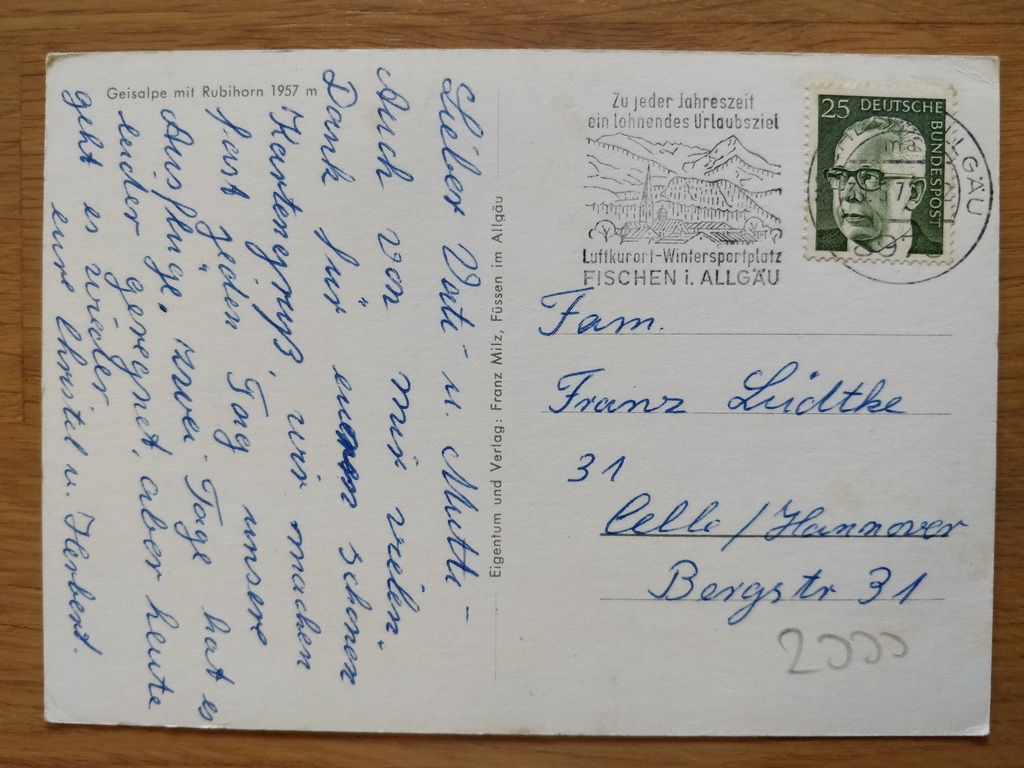 Geisalpe mit Rubihorn 1957 m
Lieber Vati u. Mutti -
Auch von mir vielen
Dank für euren schönen
Kartengruß, wir machen
fast jeden Tag unsere
Ausflüge, zwei Tage hat es
leider geregnet, aber heute
geht es wieder
eure Christel u. Herbert.
Eigentum und Verlag: Franz Milz, Füssen im Allgäu
Zu jeder Jahreszeit
ein lohnendes Urlaubsziel
Luftkurort-Wintersportplatz
FISCHEN i. ALLGÄU
25 DEUTSCHE
BUNDESPOST
LGÄU
Fam.
Franz Lüdtke
31
Celle / Hannover
Bergstr 31